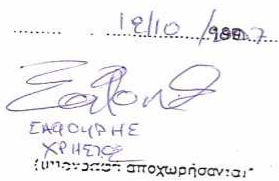 19/10/2007
ΣΑΦΟΥΡΗΣ
ΧΡΗΣΤΟΣ
(υπογραφή αποχωρήσαντα)"